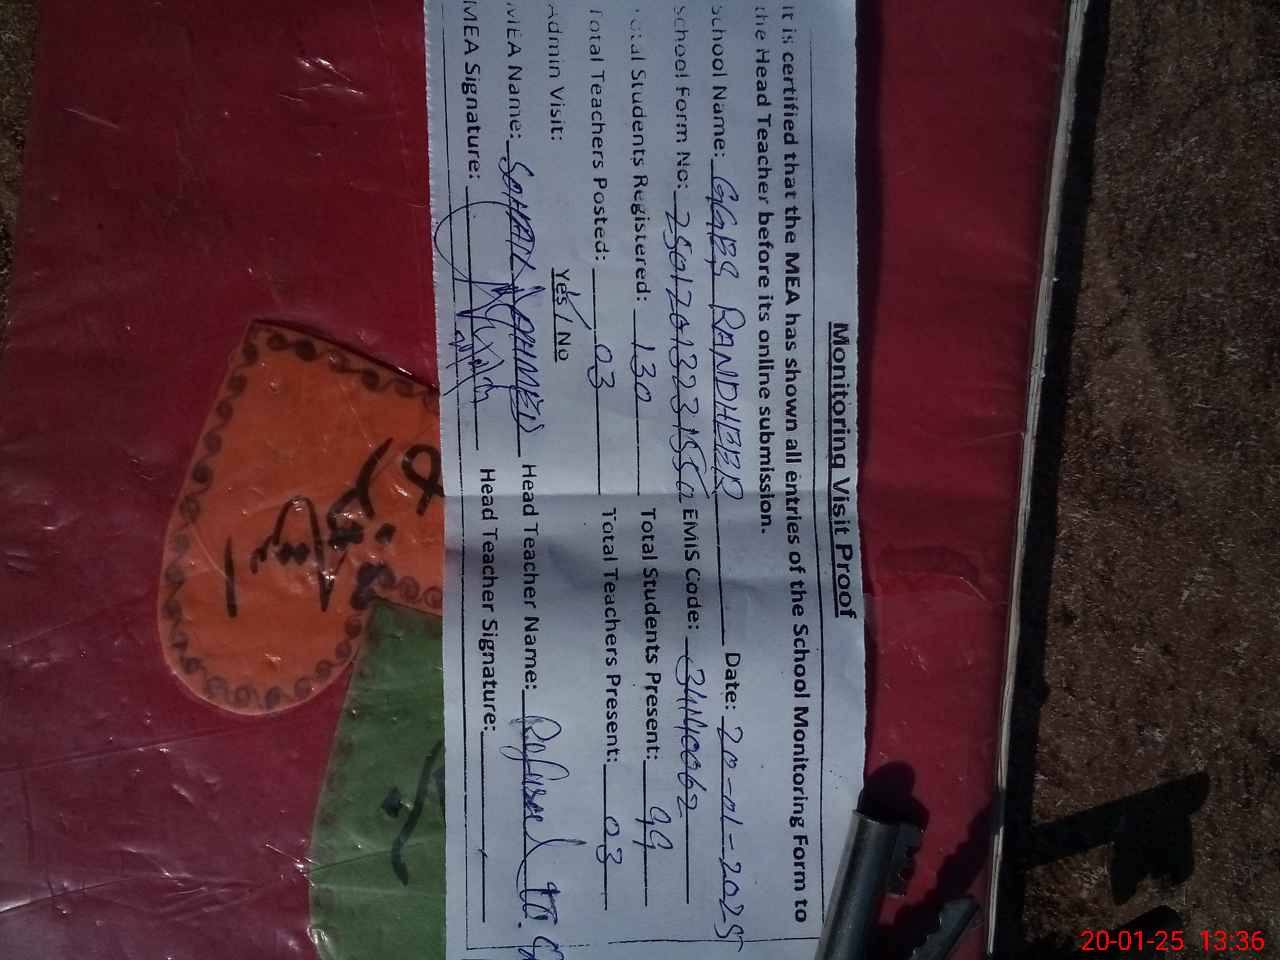 Monitoring Visit Proof
It is certified that the MEA has shown all entries of the School Monitoring Form to
the Head Teacher before its online submission.
School Name: GGES RANDHEER Date: 20-01-2025
School Form No: EMIS Code:
Total Students Registered: 130 Total Students Present: 99
Total Teachers Posted: 03 Total Teachers Present: 03
Admin Visit: Yes / No
MEA Name: AHMED Head Teacher Name: Refused to
MEA Signature: Head Teacher Signature:
20-01-25 13:36